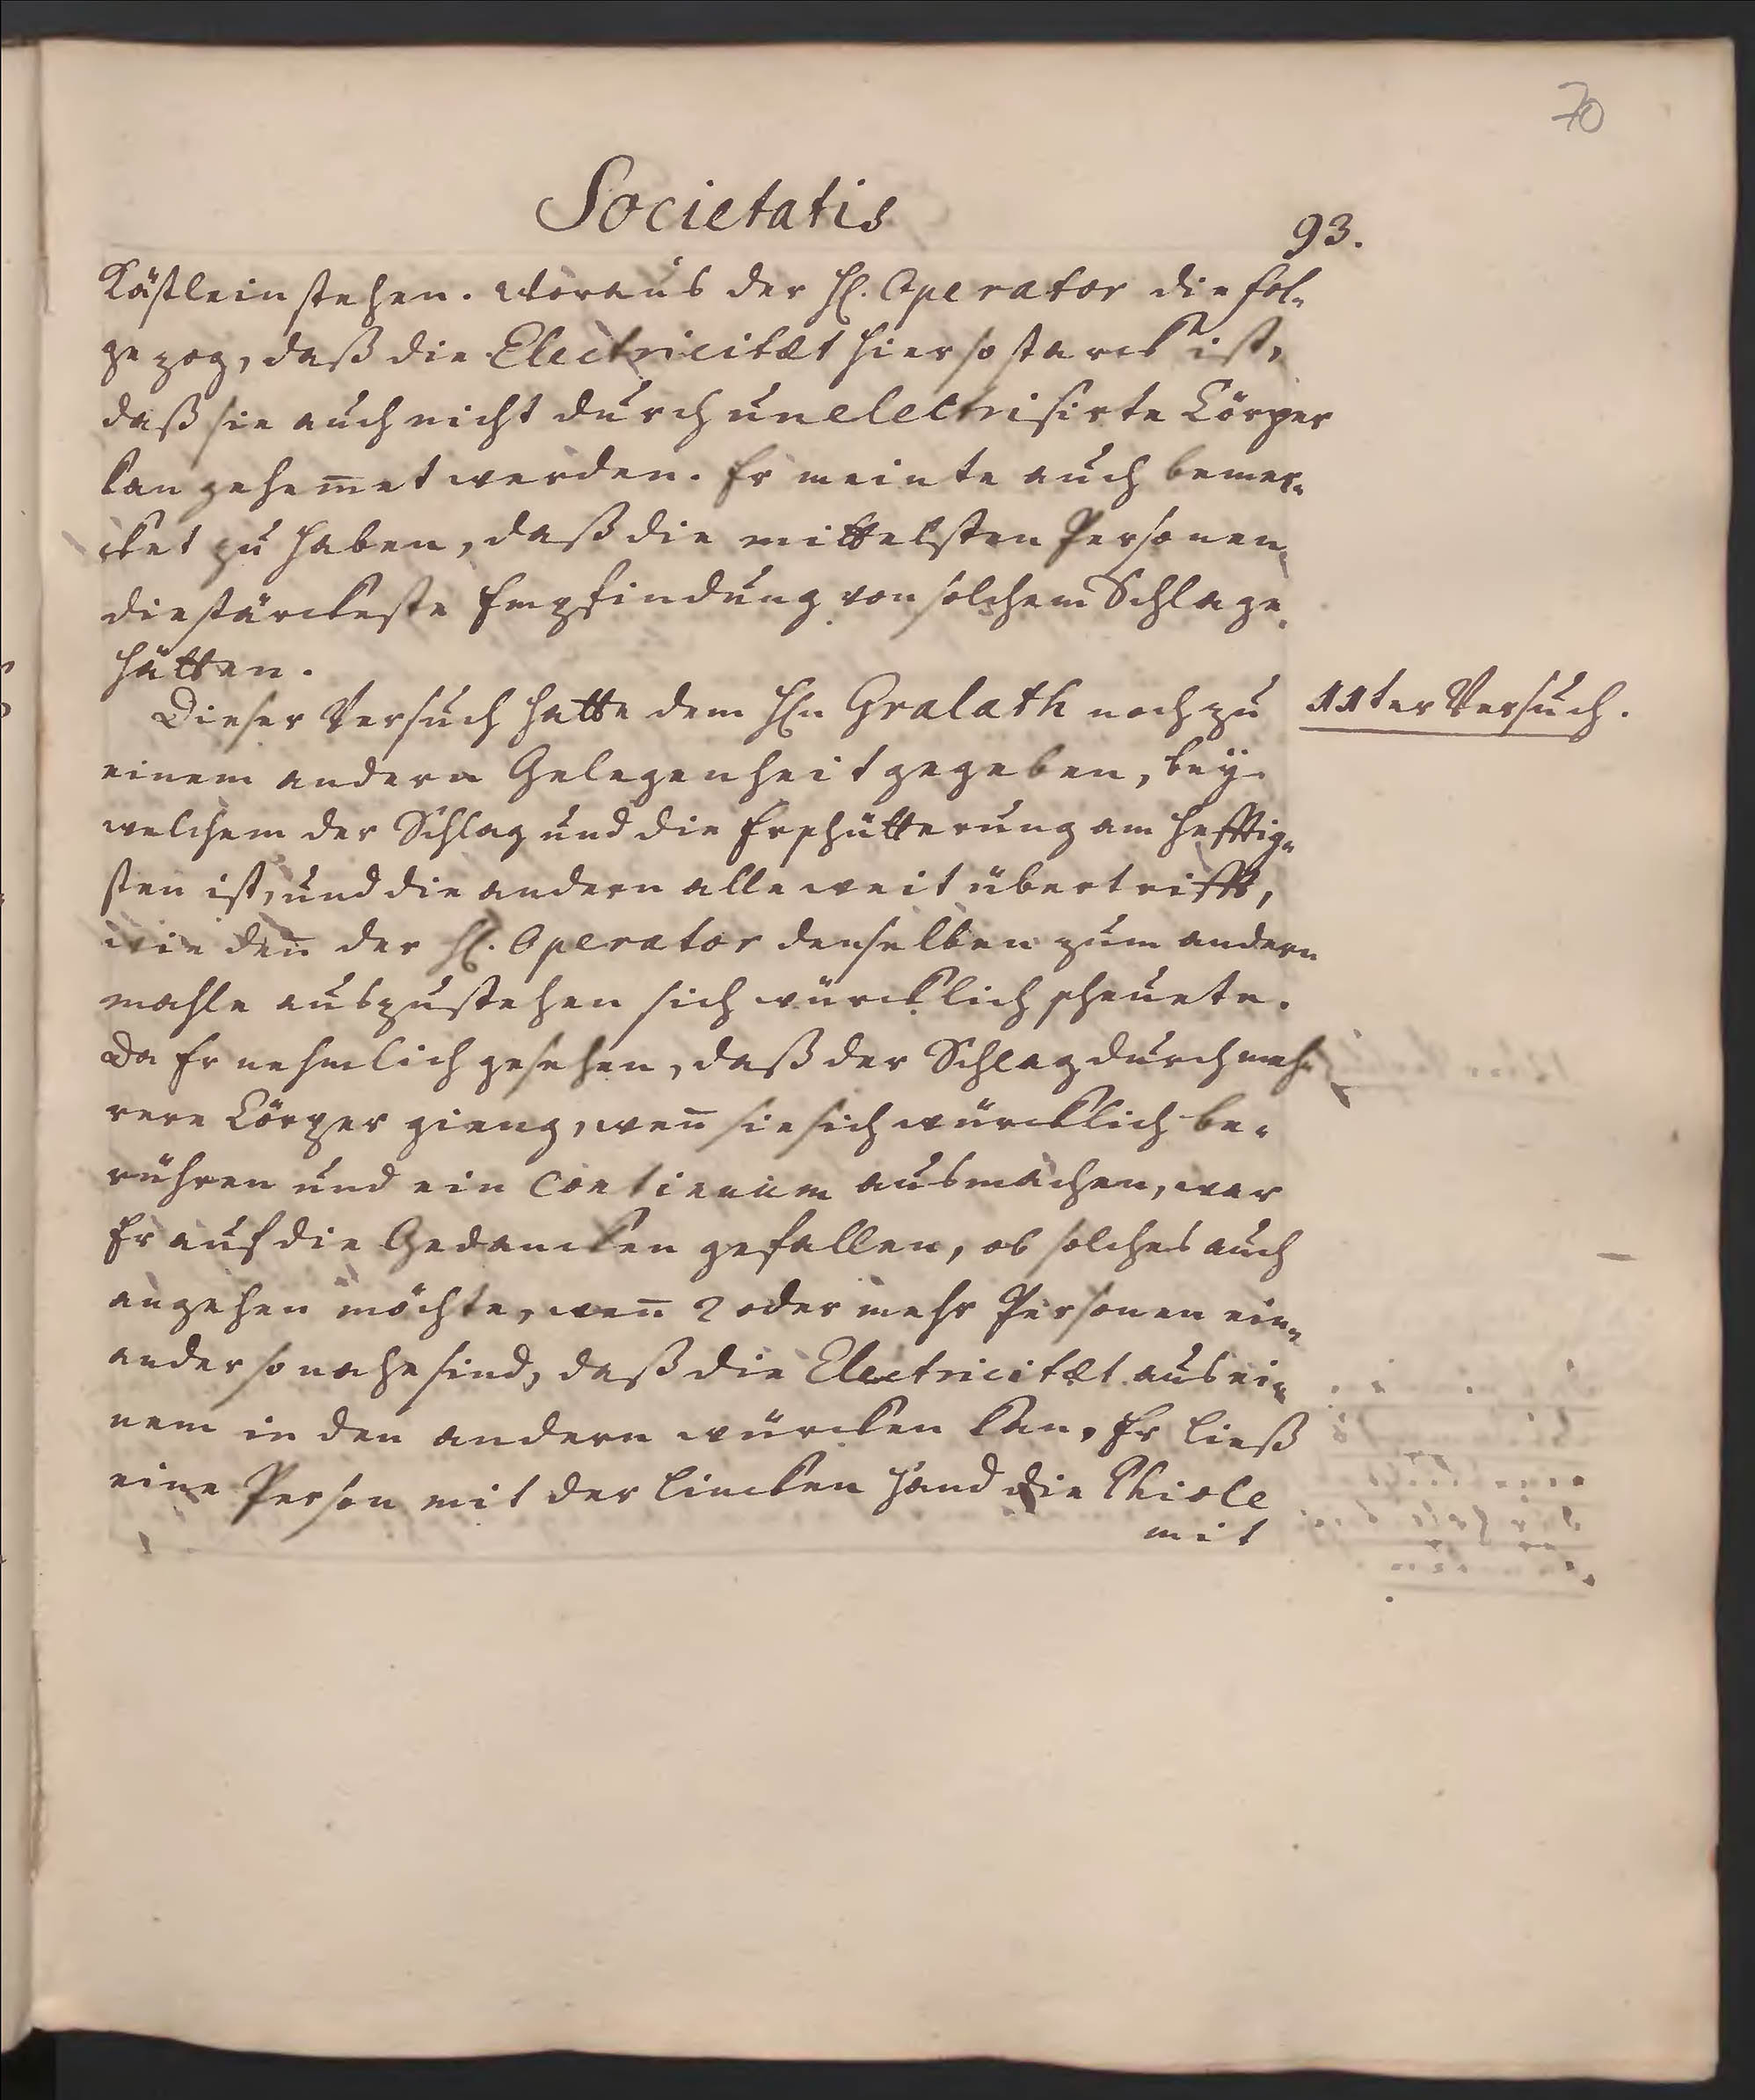 70
Societatis
93.
Kästlein stehen. Woraus der H. Operator die fol-
ge zog, daß die Electricitæt hier so starck ist,
daß sie auch nicht durch unelectrisirte Cörper
kan gehem̅et werden. Er meinte auch bemer-
cket zu haben, daß die mittelsten Personen
die stärckeste Empfindung von solchem Schlage
hätten.
Dieser Versuch hatte dem Hn Gralath noch zu
11ter Versuch.
einem andern Gelegenheit gegeben, bey
welchem der Schlag und die Erschütterung am hefftig-
sten ist, und die andern alle weit übertrifft,
wie den̅ der H. Operator denselben zum andern
mahle auszustehen sich würcklich scheuete.
Da Er nehmlich gesehen, daß der Schlag durch meh-
rere Cörper gieng, wen̅ sie sich würcklich be-
rühren und ein Continuum ausmachen, war
Er auf die Gedancken gefallen, ob solches auch
angehen möchte, wen̅ 2 oder mehr Personen ein-
ander so nahe sind, daß die Electricitæt aus ei-
nem in den andern würcken kan. Er ließ
eine Person mit der lincken Hand die Phiole
mit